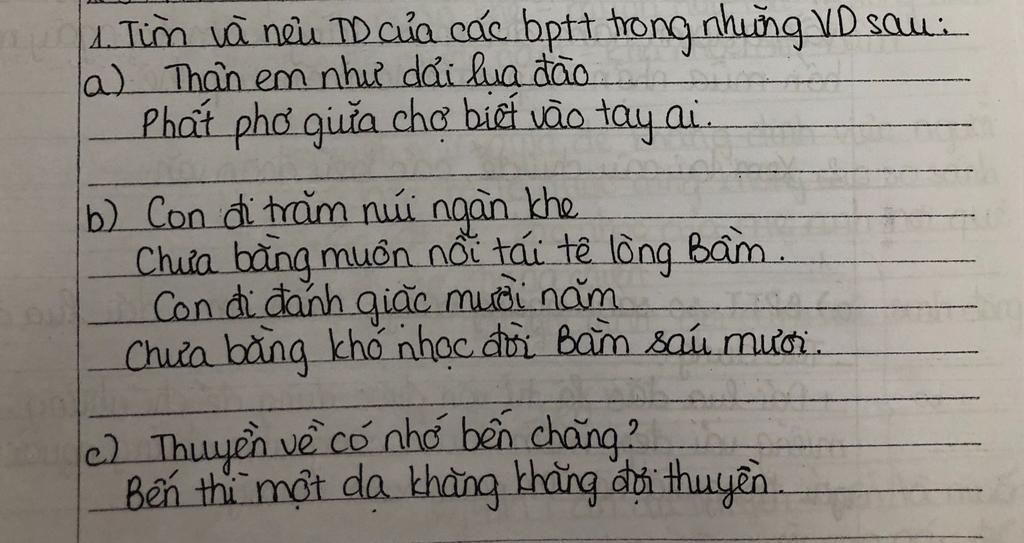 1. Tìm và nêu TD của các bptt trong những VD sau:
a) Thân em như dải lụa đào
Phất phơ giữa chợ biết vào tay ai.
b) Con đi trăm núi ngàn khe
Chưa bằng muôn nỗi tái tê lòng Bầm.
Con đi đánh giặc mười năm
Chưa bằng khó nhọc đời Bầm sáu mươi.
c) Thuyền về có nhớ bến chăng?
Bến thì một dạ khăng khăng đợi thuyền.